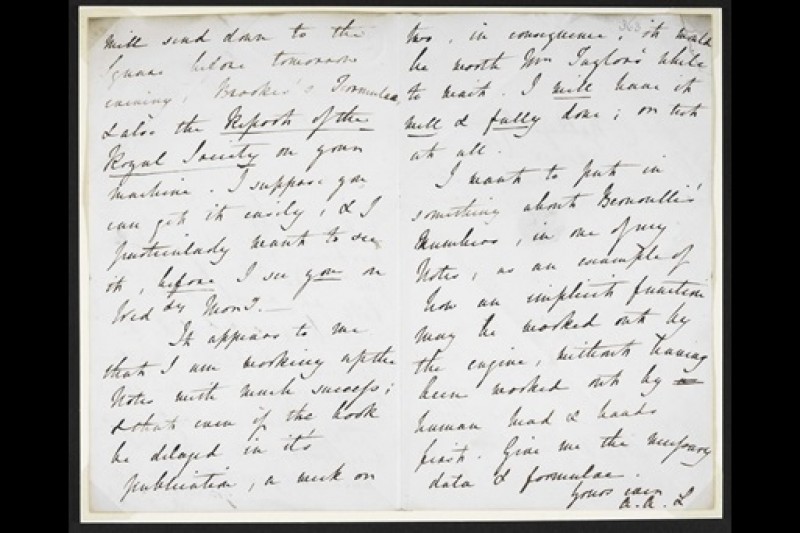 will send down to the
Square before tomorrow
evening, Brooke's Formulae,
& also the Report of the
Royal Society on your
machine. I suppose you
can get it easily, & I
particularly want to see
it, before I see you on
Wed dy Morng.—
It appears to me
that I am working up the
Notes with much success;
& that even if the book
be delayed in it's
publication, a week or
363
two, in consequence, it would
be worth Mr Taylor's while
to wait. I will have it
well & fully done; or not
at all.
I want to put in
something about Bernoulli's
Numbers, in one of my
Notes, as an example of
how an implicit function
may be worked out by
the engine, without having
been worked out by
human head & hands
first. Give me the necessary
data & formulae.
Yours ever
A. A. L